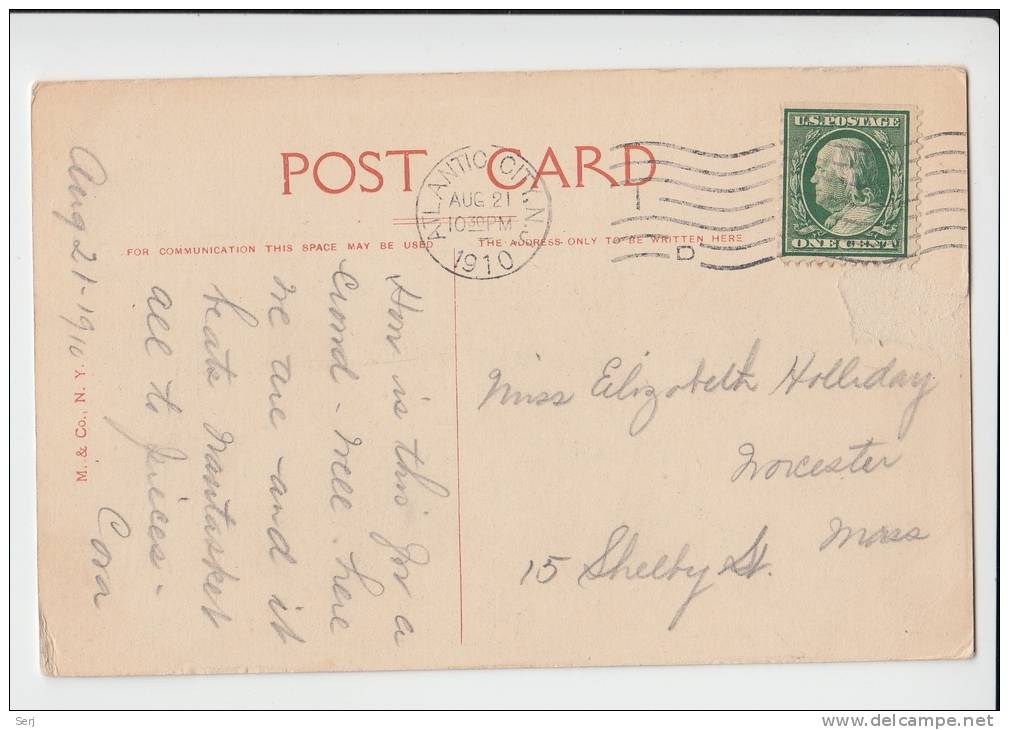 POST CARD
ATLANTIC CITY, N.J.
AUG 21
10 30 PM
1910
D
U.S. POSTAGE
ONE CENT
FOR COMMUNICATION THIS SPACE MAY BE USED
THE ADDRESS ONLY TO BE WRITTEN HERE
M. & Co., N. Y.
Aug 21-1910
How is this for a
crowd - well here
we are - and it
beats Nantasket
all to pieces -
Cora
Miss Elizabeth Holliday
Worcester
Mass
15 Shelby St.
Serj
www.delcampe.net